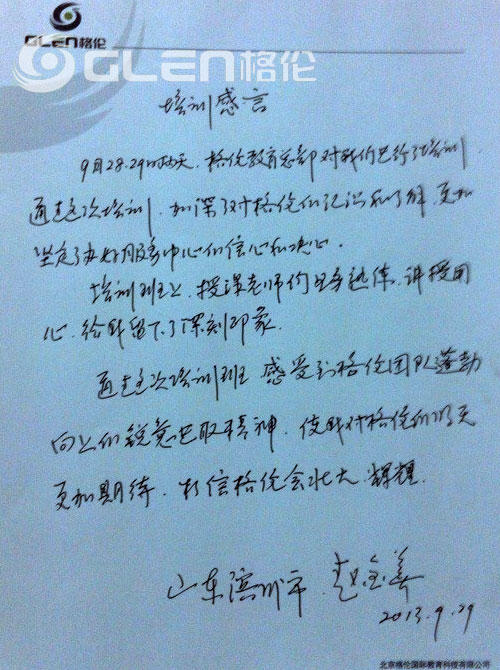 GLEN格伦
GLEN格伦
培训感言
9月28.29日两天、格伦教育总部对我们进行了培训
通过这次培训、加深了对格伦的认识和了解、更加
坚定了办好服务中心的信心和决心。
培训班上、授课老师们 热体、讲授用
心、给我留下了深刻印象。
通过这次培训班 感受到格伦团队蓬勃
向上的锐意进取精神、使我对格伦的明天
更加期待、相信格伦会壮大、辉煌
山东滨州市 赵金
2013.9.29
北京格伦国际教育科技有限公司